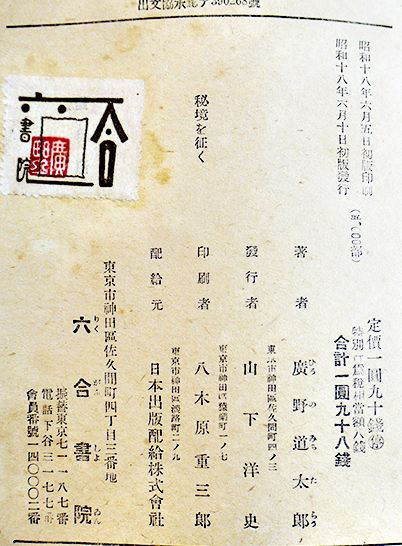 出文協承認ア390268號
昭和十八年六月五日初版印刷
昭和十八年六月十日初版發行
部)
秘境を征く
定價一圓九十錢
特別行爲税相當額八錢
合計一圓九十八錢
著者 廣野道太郎
ひろ の みち た らう
東京市神田區佐久間町四ノ三
發行者 山下洋史
東京市神田區猿樂町一ノ七
印刷者 八木原重三郎
東京市神田區淡路町二ノ九
配給元 日本出版配給株式會社
東京市神田區佐久間町四丁目三番地
六合書院
りく がふ しよ ゐん
振替東京七一一八七番
電話下谷三一七七番
會員番號一四〇〇〇二番
六合
書院
廣野